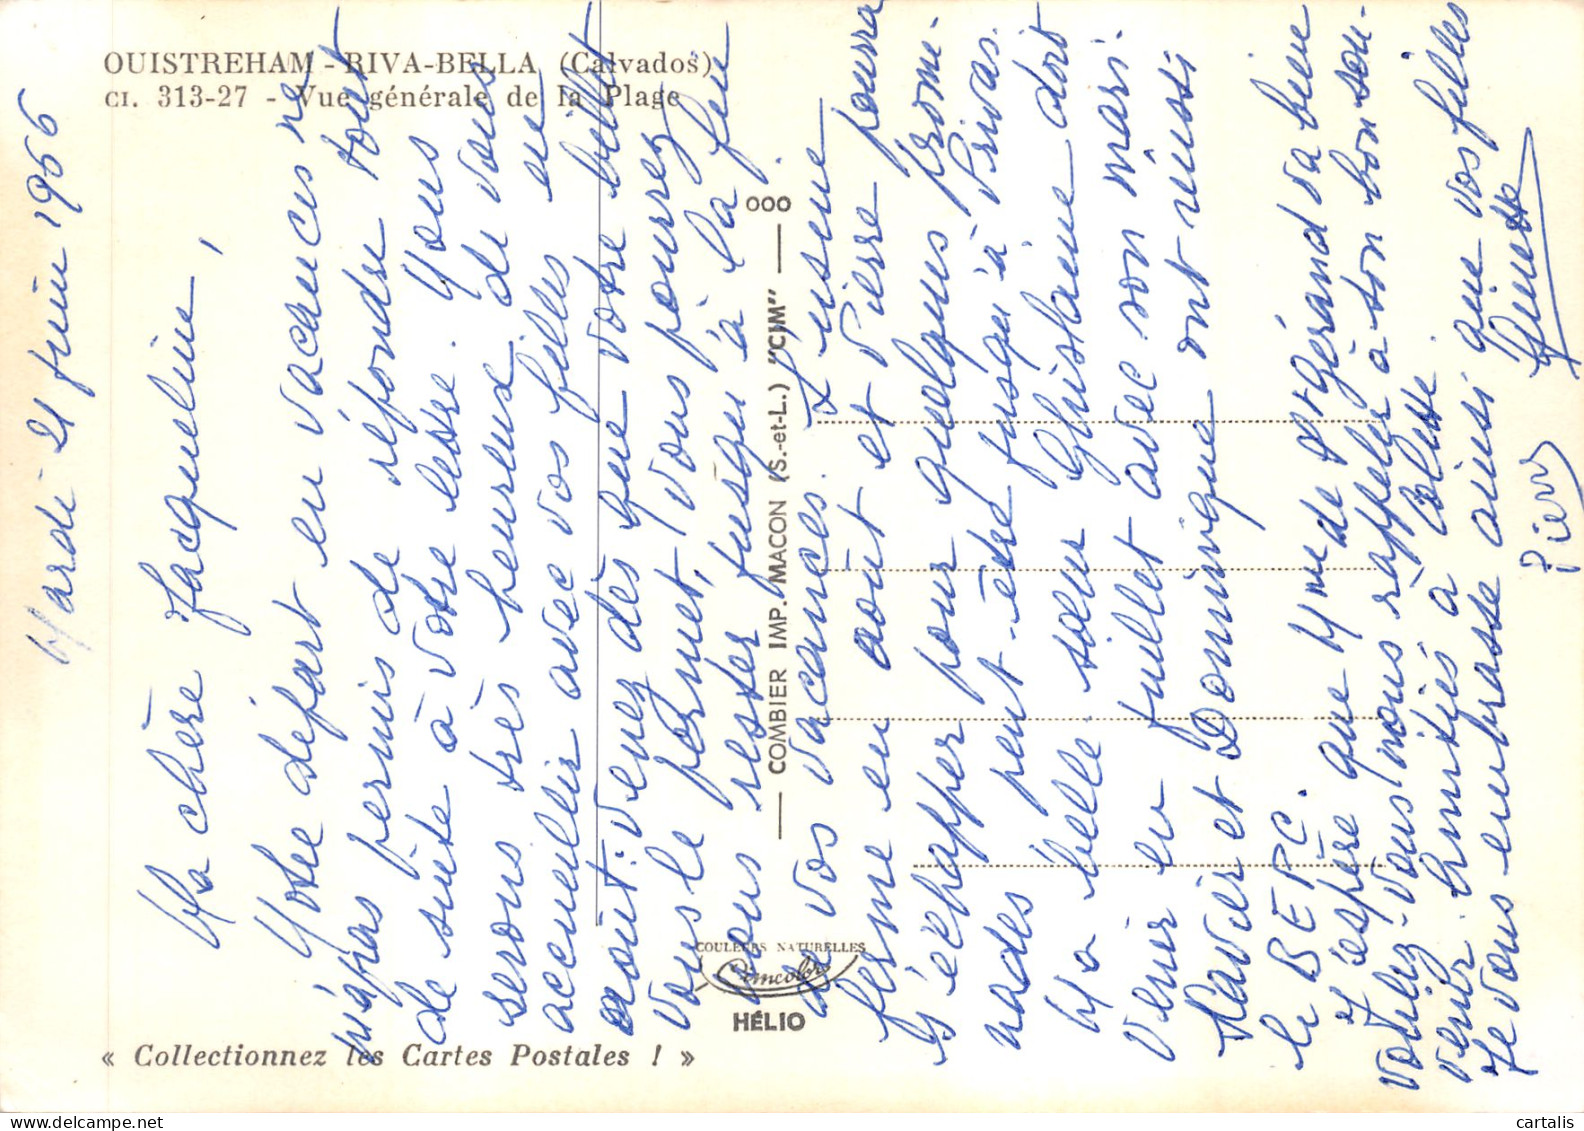 OUISTREHAM - RIVA-BELLA (Calvados)
CI. 313-27 - Vue générale de la Plage
Mardi 21 juin 1966
Ma chère Jacqueline,
Votre départ en vacances ne
m'a pas permis de répondre tout
de suite à votre lettre. Nous
serons très heureux de vous
accueillir avec vos filles en
août. Venez dès que votre billet
vous le permet, vous pourrez
nous rester jusqu'à la fin
de vos vacances. L'usine
ferme en août et Pierre pourra
s'échapper pour quelques prome-
nades peut-être jusqu'à Privas.
Ma belle-sœur Ghislaine doit
venir en juillet avec son mari.
Xavier et Dominique ont réussi
le BEPC.
J'espère que Mme de St Gérand va bien
voulez-vous nous rappeler à son bon sou-
venir. Amitiés à Colette.
Je vous embrasse ainsi que vos filles
Ginette
Pierre
COMBIER IMP. MACON (S.-et-L.) "CIM"
COULEURS NATURELLES
Cimcolor
HÉLIO
« Collectionnez les Cartes Postales ! »
cartalis